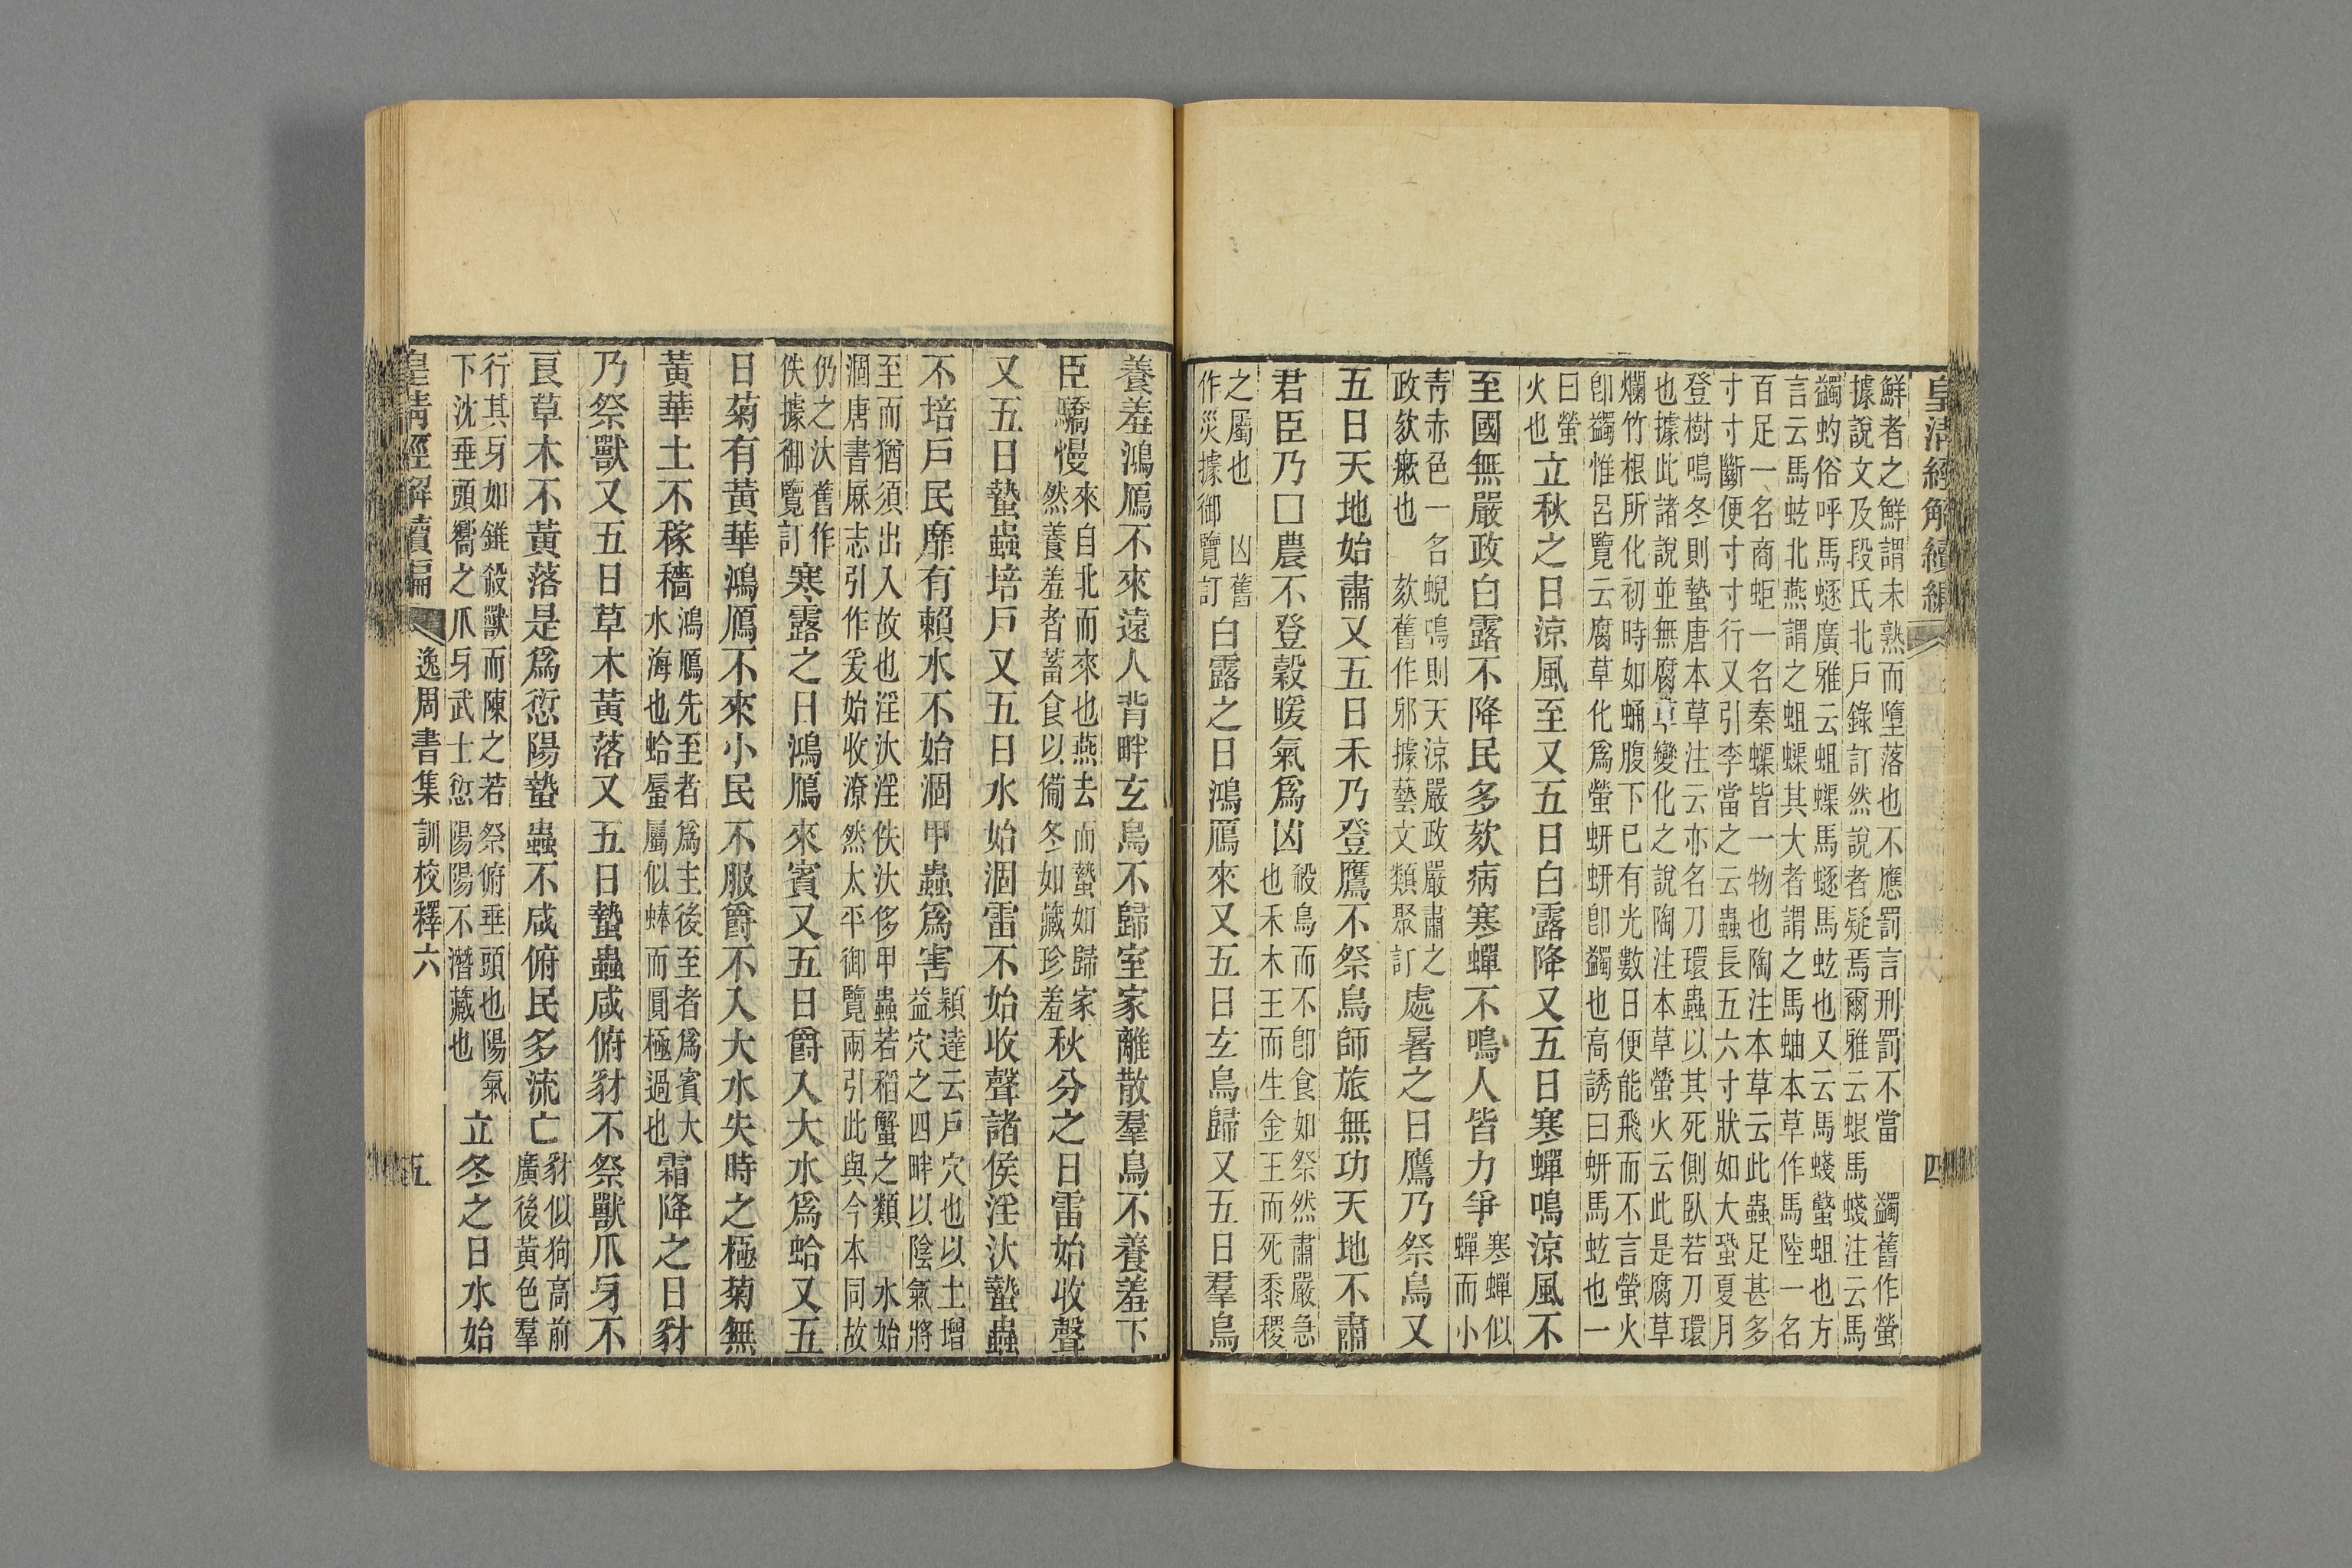 皇清經解續編 四
鮮者之鮮謂未熟而墮落也不應罰言刑罰不當 蠲舊作螢
據說文及段氏北戶錄訂然說者疑焉爾雅云蛝馬蝬注云馬
蠲蚐俗呼馬蝬廣雅云蛆蟝馬蝬馬蚿也又云馬蝬螫蛆也方
言云馬蚿北燕謂之蛆蟝其大者謂之馬蚰本草作馬陸一名
百足一名商蚷一名秦蟝皆一物也陶注本草云此蟲足甚多
寸寸斷便寸寸行又引李當之云蟲長五六寸狀如大蛩夏月
登樹鳴冬則蟄唐本草注云亦名刀環蟲以其死側臥若刀環
也據此諸說並無腐草變化之說陶注本草螢火云此是腐草
爛竹根所化初時如蛹腹下已有光數日便能飛而不言螢火
卽蠲惟呂覽云腐草化爲螢蚈蚈卽蠲也高誘曰蚈馬蚿也一
曰螢火也立秋之日涼風至又五日白露降又五日寒蟬鳴涼風不
至國無嚴政白露不降民多欬病寒蟬不鳴人皆力爭寒蟬似蟬而小
靑赤色一名蜺鳴則天涼嚴政嚴肅之政欬瘷也 欬舊作邪據藝文類聚訂處暑之日鷹乃祭鳥又
五日天地始肅又五日禾乃登鷹不祭鳥師旅無功天地不肅
君臣乃囗農不登穀暖氣爲凶殺鳥而不卽食如祭然肅嚴急也禾木王而生金王而死黍稷
之屬也 凶舊作災據御覽訂白露之日鴻鴈來又五日玄鳥歸又五日羣鳥
養羞鴻鴈不來遠人背畔玄鳥不歸室家離散羣鳥不養羞下
臣驕慢來自北而來也燕去而蟄如歸家然養羞者蓄食以備冬如藏珍羞秋分之日雷始收聲
又五日蟄蟲培戶又五日水始涸雷不始收聲諸侯淫汏蟄蟲
不培戶民靡有賴水不始涸甲蟲爲害穎達云戶穴也以土增益穴之四畔以陰氣將
至而猶須出入故也淫汏淫佚汏侈甲蟲若稻蟹之類 水始涸唐書厤志引作爰始收潦然太平御覽兩引此與今本同故
仍之汏舊作佚據御覽訂寒露之日鴻鴈來賓又五日爵入大水爲蛤又五
日菊有黃華鴻鴈不來小民不服爵不入大水失時之極菊無
黃華土不稼穡鴻鴈先至者爲主後至者爲賓大水海也蛤蜃屬似蜯而圓極過也霜降之日豺
乃祭獸又五日草木黃落又五日蟄蟲咸俯豺不祭獸爪牙不
良草木不黃落是爲愆陽蟄蟲不咸俯民多流亡豺似狗高前廣後黃色羣
行其牙如錐殺獸而陳之若祭俯垂頭也陽氣下沈垂頭嚮之爪牙武士愆陽陽不潛藏也立冬之日水始
皇清經解續編 逸周書集訓校釋六 五